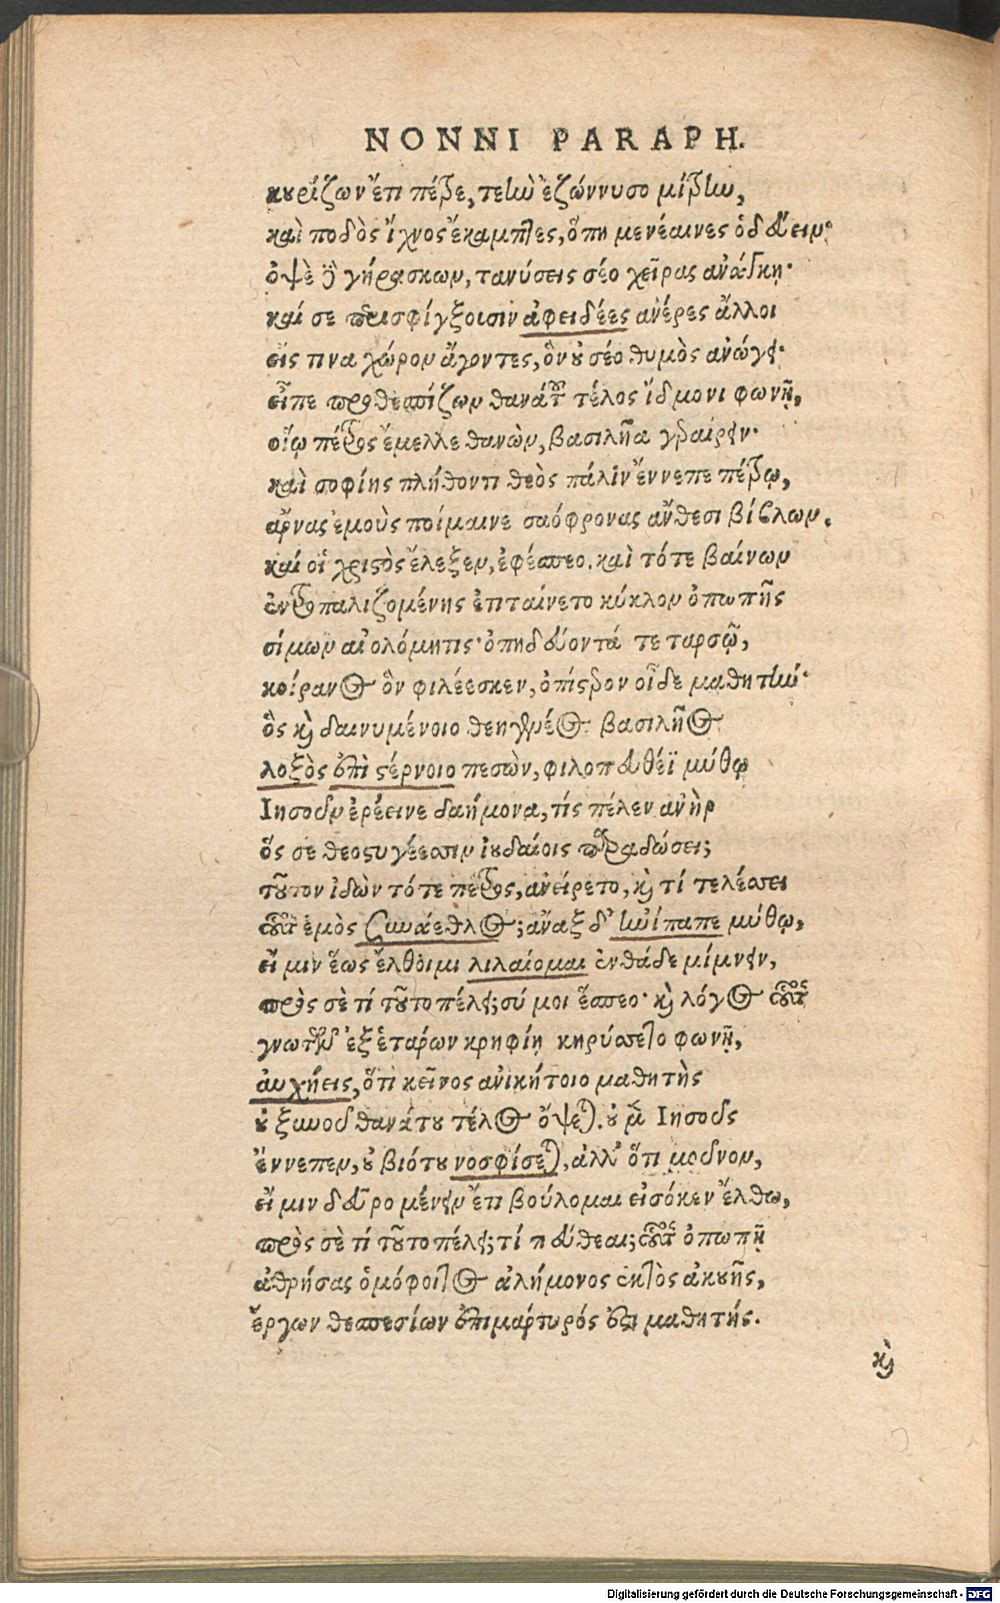 NONNI PARAPH.
κουρίζων ἔτι πέτρε, τεὴν ἐζώννυσο μίτρην,
καὶ ποδὸς ἴχνος ἔκαμπτες, ὅπη μενέαινες ὁδεύειν·
ὀψὲ δὲ γηράσκων, τανύσεις σέο χεῖρας ἀνάγκῃ·
καί σε περισφίγξουσιν ἀφειδέες ἀνέρες ἄλλοι
εἴς τινα χῶρον ἄγοντες, ὃν οὐ σέο θυμὸς ἀνώγει·
εἶπε προθεσπίζων θανάτου τέλος ἴδμονι φωνῇ,
οἵῳ πέτρος ἔμελλε θανὼν, βασιλῆα γεραίρειν·
καὶ σοφίης πλήθοντι θεὸς πάλιν ἔννεπε πέτρῳ,
ἄρνας ἐμοὺς ποίμαινε σαόφρονας ἄνθεσι βίβλων.
καί οἱ χριστὸς ἔλεξεν, ἐφέσπεο. καὶ τότε βαίνων
ἐντροπαλιζομένης ἐπιταίνετο κύκλον ὀπωπῆς
σίμων αἰολόμητις· ὀπηδεύοντά τε ταρσῷ,
κοίρανος ὃν φιλέεσκεν, ὀπίστερον οἶδε μαθητήν·
ὃς καὶ δαινυμένοιο θεηγενέος βασιλῆος
λοξὸς ἐπὶ στέρνοιο πεσὼν, φιλοπευθέϊ μύθῳ
Ιησοῦν ἐρέεινε δαήμονα, τίς πέλεν ἀνὴρ
ὅς σε θεοστυγέεσσιν ἰουδαίοις παραδώσει;
τοῦτον ἰδὼν τότε πέτρος, ἀνείρετο, καὶ τί τελέσσει
οὗτος ἐμὸς συνάεθλος; ἄναξ δ' ἠνίπαπε μύθῳ,
εἴ μιν ἕως ἔλθοιμι λιλαίομαι ἐνθάδε μίμνειν,
πρὸς σὲ τί τοῦτο πέλει; σύ μοι ἕσπεο· καὶ λόγος οὗτος
γνωτῶν ἐξ ἑτάρων κρηφίῃ κηρύσσετο φωνῇ,
αὐχήεις, ὅτι κεῖνος ἀνικήτοιο μαθητὴς
οὐ ξυνοῦ θανάτου τέλος ὄψεται. οὐ μὲν Ιησοῦς
ἔννεπεν, οὐ βιότου νοσφίσεται, ἀλλ' ὅτι μοῦνον,
εἴ μιν δεῦρο μένειν ἔτι βούλομαι εἰσόκεν ἔλθω,
πρὸς σὲ τί τοῦτο πέλει; τί πεύθεαι; οὗτος ὀπωπῇ
ἀθρήσας ὁμόφοιτος ἀλήμονος ἐκτὸς ἀκουῆς,
ἔργων θεσπεσίων ἐπιμάρτυρός ἐστι μαθητής.
καὶ
Digitalisierung gefördert durch die Deutsche Forschungsgemeinschaft - DFG